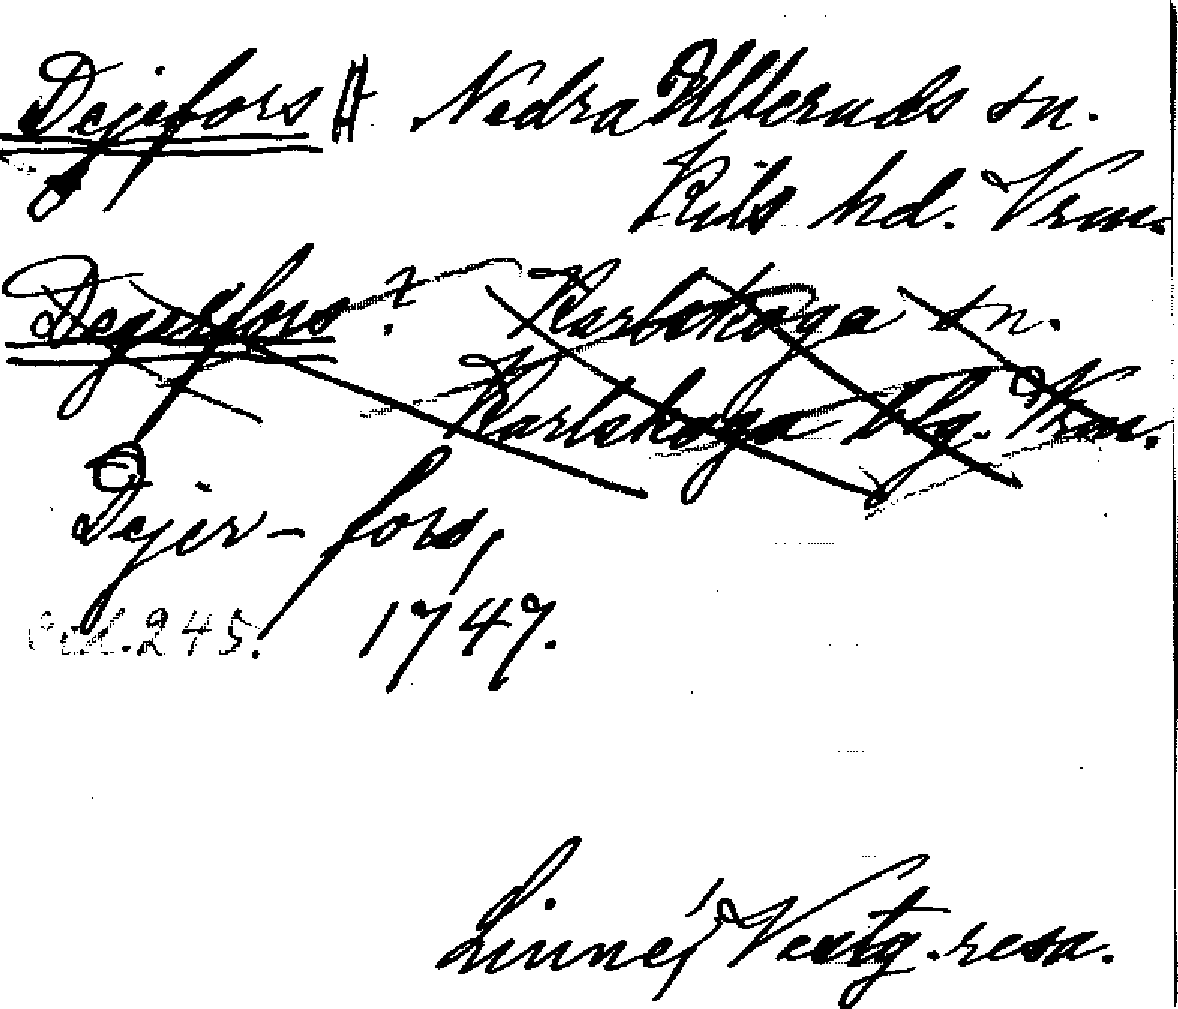 Dejefors # Nedra Ulleruds sn.
Kils hd. Vrm.
Dejerfors? Karlskoga sn.
Karlskoga blg. Vrm.
Dejer-fors,
245. 1747.
Linné, Vestg. resa.